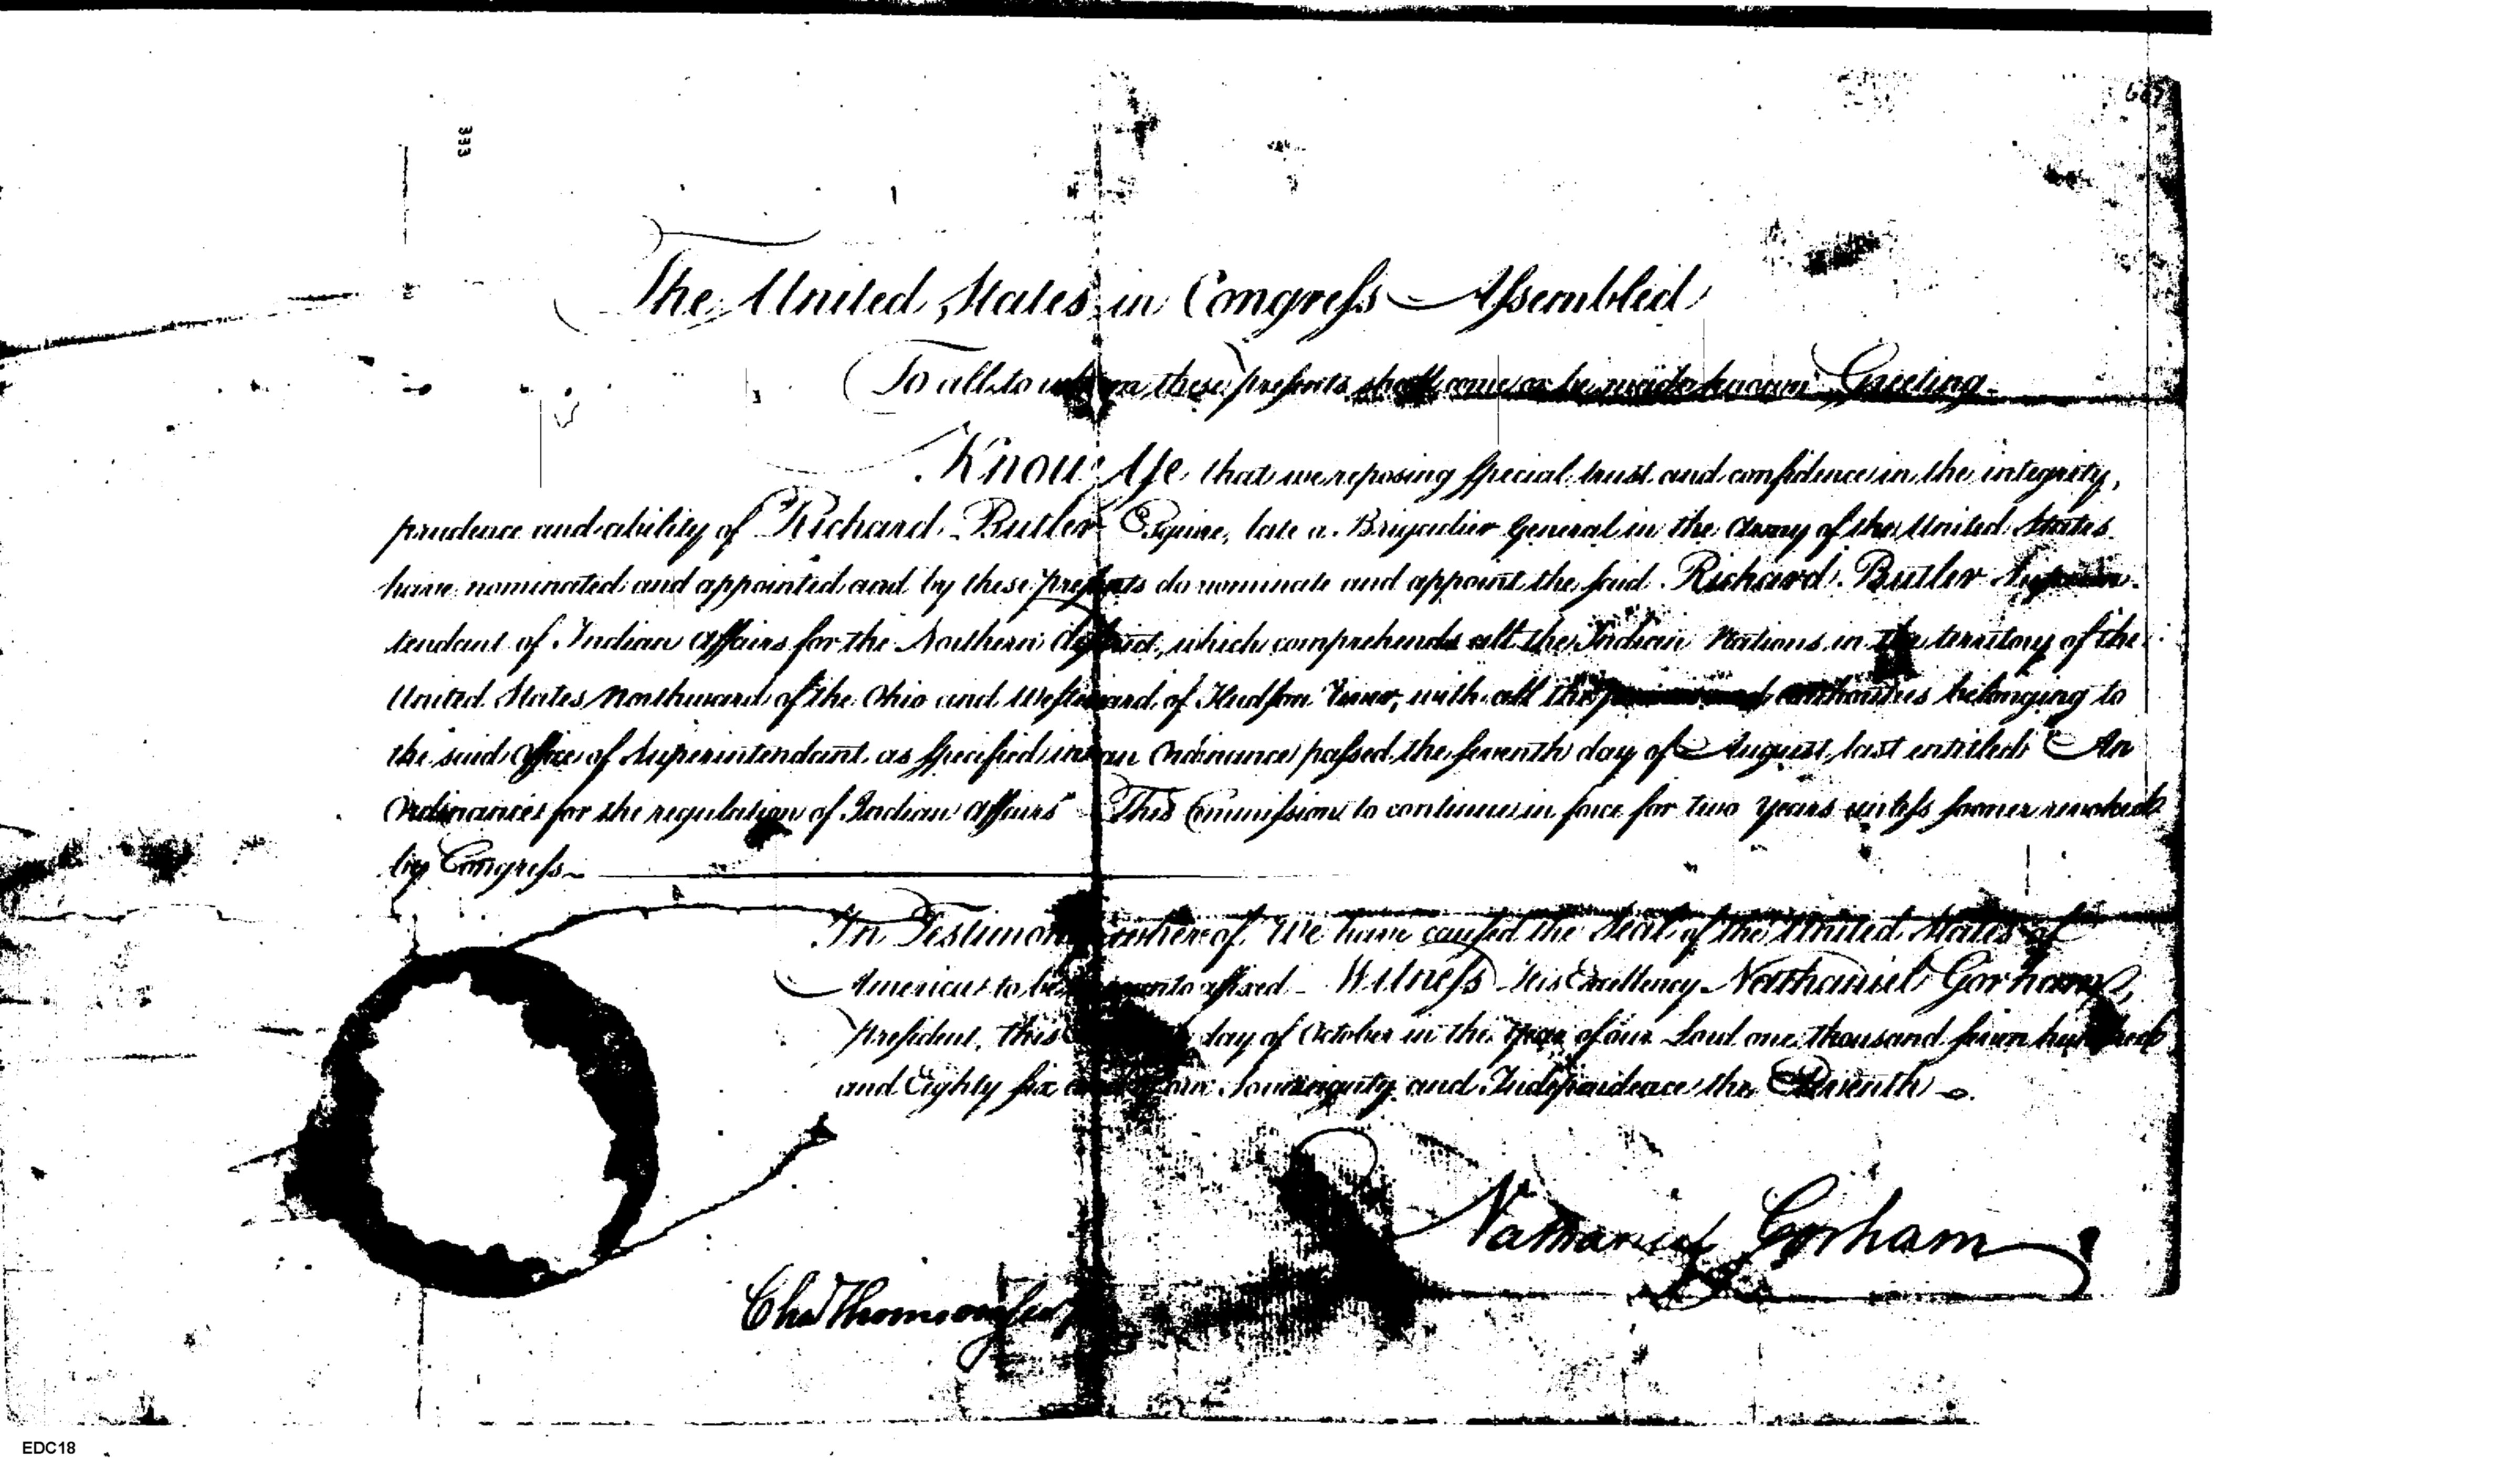 667
333
The United States in Congress Assembled
To all to whom these presents shall come or be made known Greeting
Know Ye that we reposing special trust and confidence in the integrity,
prudence and ability of Richard Butler Esquire, late a Brigadier General in the Army of the United States
have nominated and appointed and by these presents do nominate and appoint the said Richard Butler Superin
tendant of Indian affairs for the Northern district, which comprehends all the Indian Nations in the territory of the
United States Northward of the Ohio and Westward of Hudson River, with all the authorities belonging to
the said office of Superintendant as specified in an Ordinance passed the seventh day of August last entitled "An
Ordinance for the regulation of Indian affairs" This Commission to continue in force for two years unless sooner revoked
by Congress
In Testimony whereof We have caused the Seal of the United States of
America to be hereunto affixed Witness His Excellency Nathaniel Gorham,
President, this day of October in the year of our Lord one thousand seven hundred
and Eighty six and of our Sovereignty and Independence the Eleventh
Nathaniel Gorham
Chas Thomson Secy
EDC18